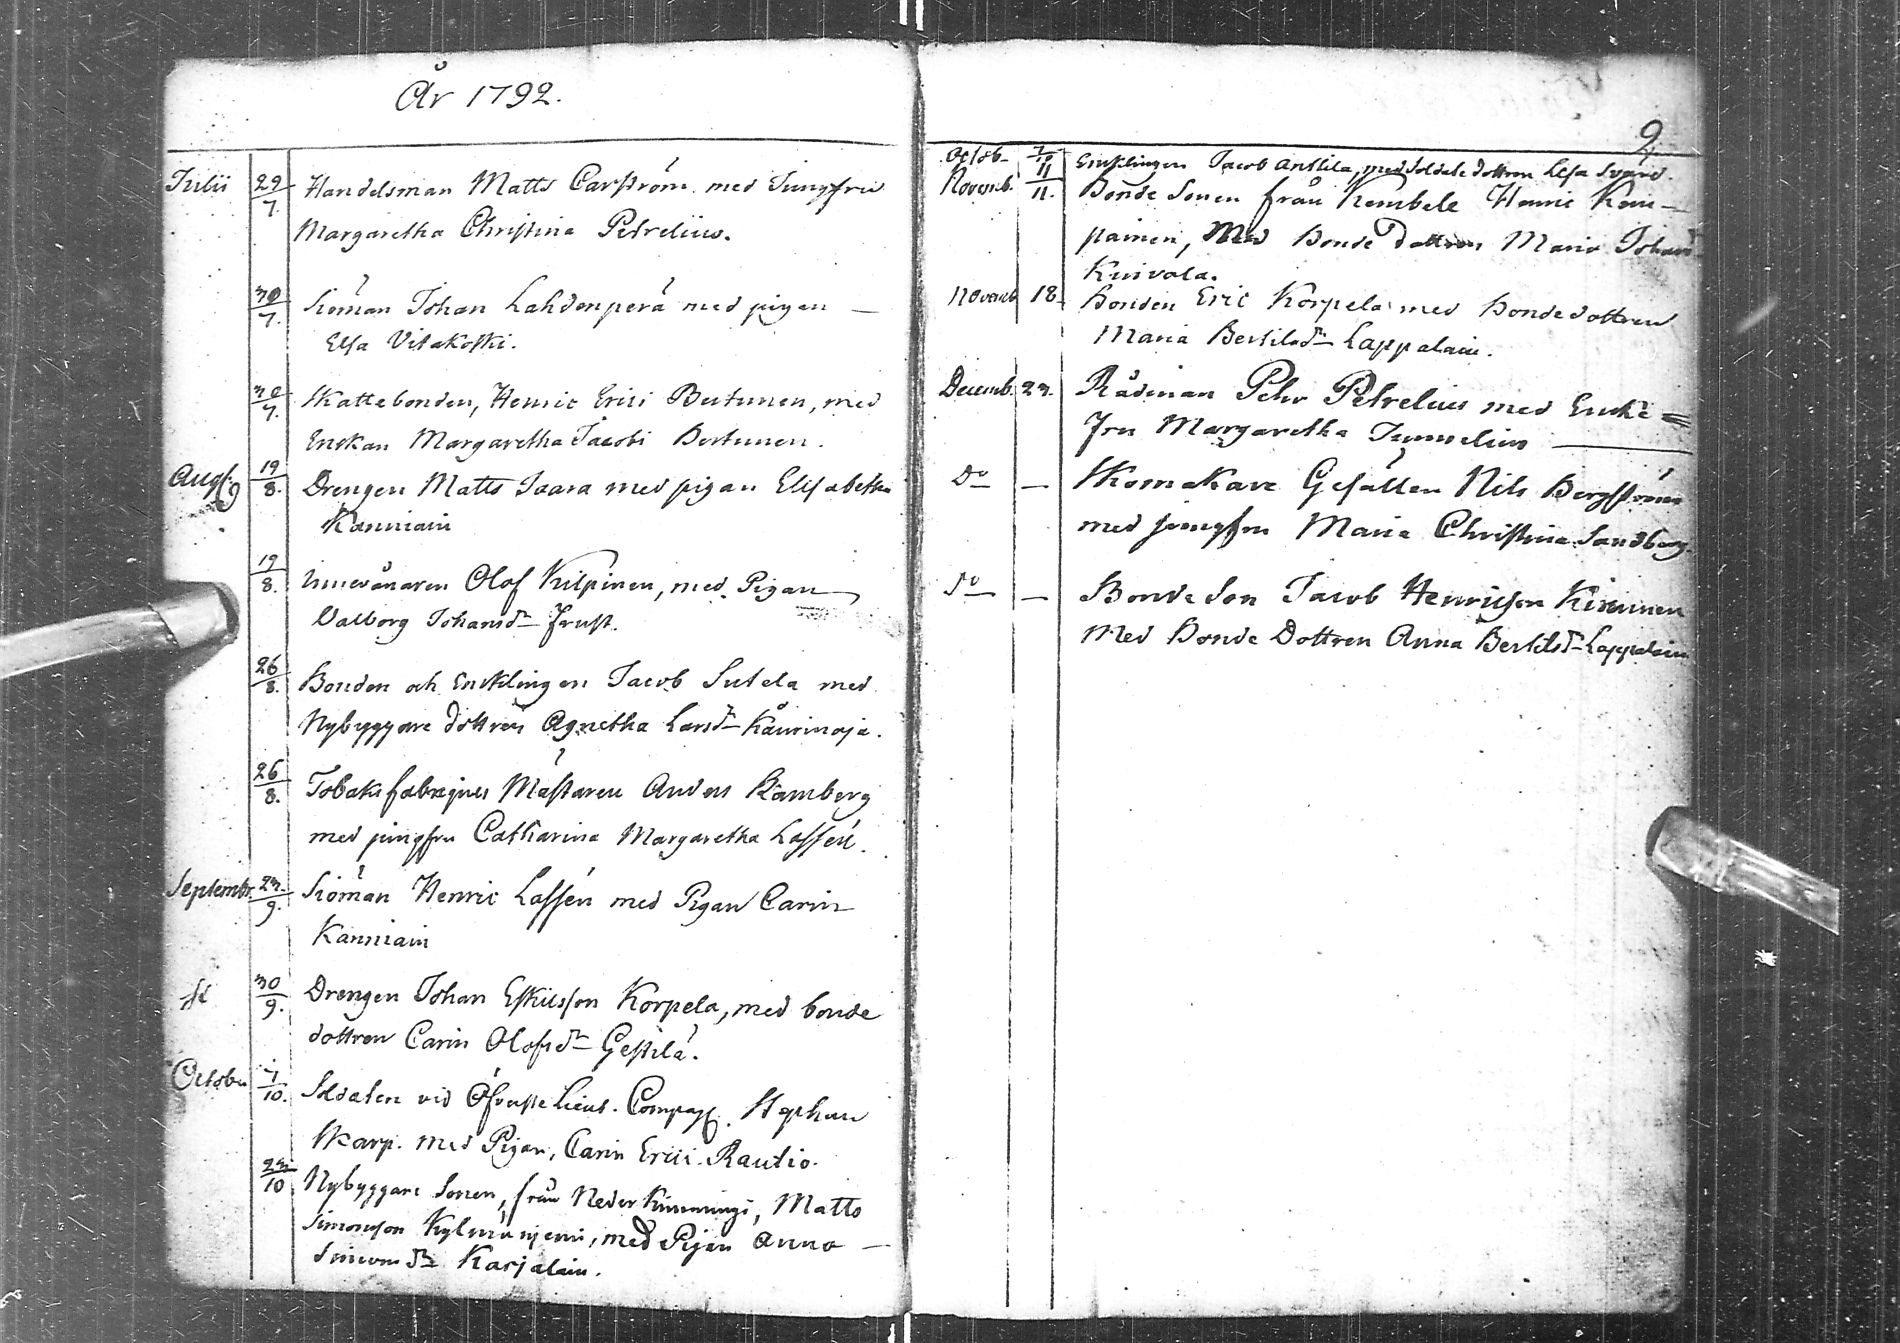 År 1792.
Julii 29/7. Handelsman Matts Carström med Jungfru
Margaretha Christina Petrelius.
30/7. Siöman Johan Lahdenperä med pigan —
Elsa Vitakoski.
30/7. Skattebonden, Henric Erici Bertunen, med
Enckan Margaretha Jacobi Bertunen.
Aug. 19/8. Drengen Matts Saara med pigan Elisabetha
Kanniain
19/8. Innevånaren Olof Kilpinen, med Pigan
Valborg Johansdr Frust.
26/8. Bonden och Encklingen Jacob Sutela med
Nybyggare dottren Agnetha Larsdr Kåurinoja.
26/8. Tobaks fabriqeus Mästaren Anders Ramberg
med jungfru Catharina Margaretha Lassén.
Septembr. 23/9. Siöman Henric Lassén med Pigan Carin
Kanniain
30/9. Drengen Johan Eskilsson Korpela, med bonde
dottren Carin Olofsdr Gestilä.
October 7/10. Soldaten vid Öfverste Lieut. Compag. Stephan
Skarp. med Pigan, Carin Erici Rautio.
23/10. Nybyggare Sonen, från Neder Kimmingi, Matts
Simonsson Kylmäniemi, med Pigan Anna —
Simonsdr Karjalain.
2
Octob. Encklingen Jacob Anttila, med Soldate dottren Lisa Svärd.
Novemb. 11/11. Bonde Sonen från Kembele Henric Kau-
painen, Med Bonde dottren Maria Johansd
Kuivala.
Novemb. 18. Bonden Eric Korpela med bonde dottren
Maria Bertilsdr Lappalain.
Decemb. 23. Rådman Pehr Petrelius med Encke=
fru Margaretha Tunnelius —
Do — Skomakare Gesällen Nils Bergström
med jungfru Maria Christina Sandberg.
Do — Bonde Son Jacob Henricson Kinnunen
Med Bonde Dottren Anna Bertilsdr Lappalain